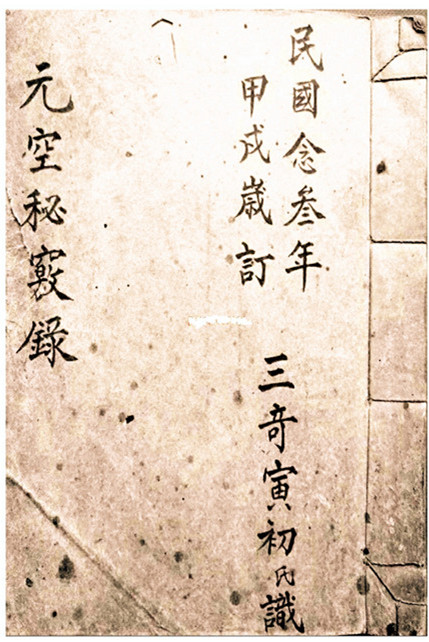 民國念叁年
甲戌歲訂
三奇寅初民識
元空秘竅錄